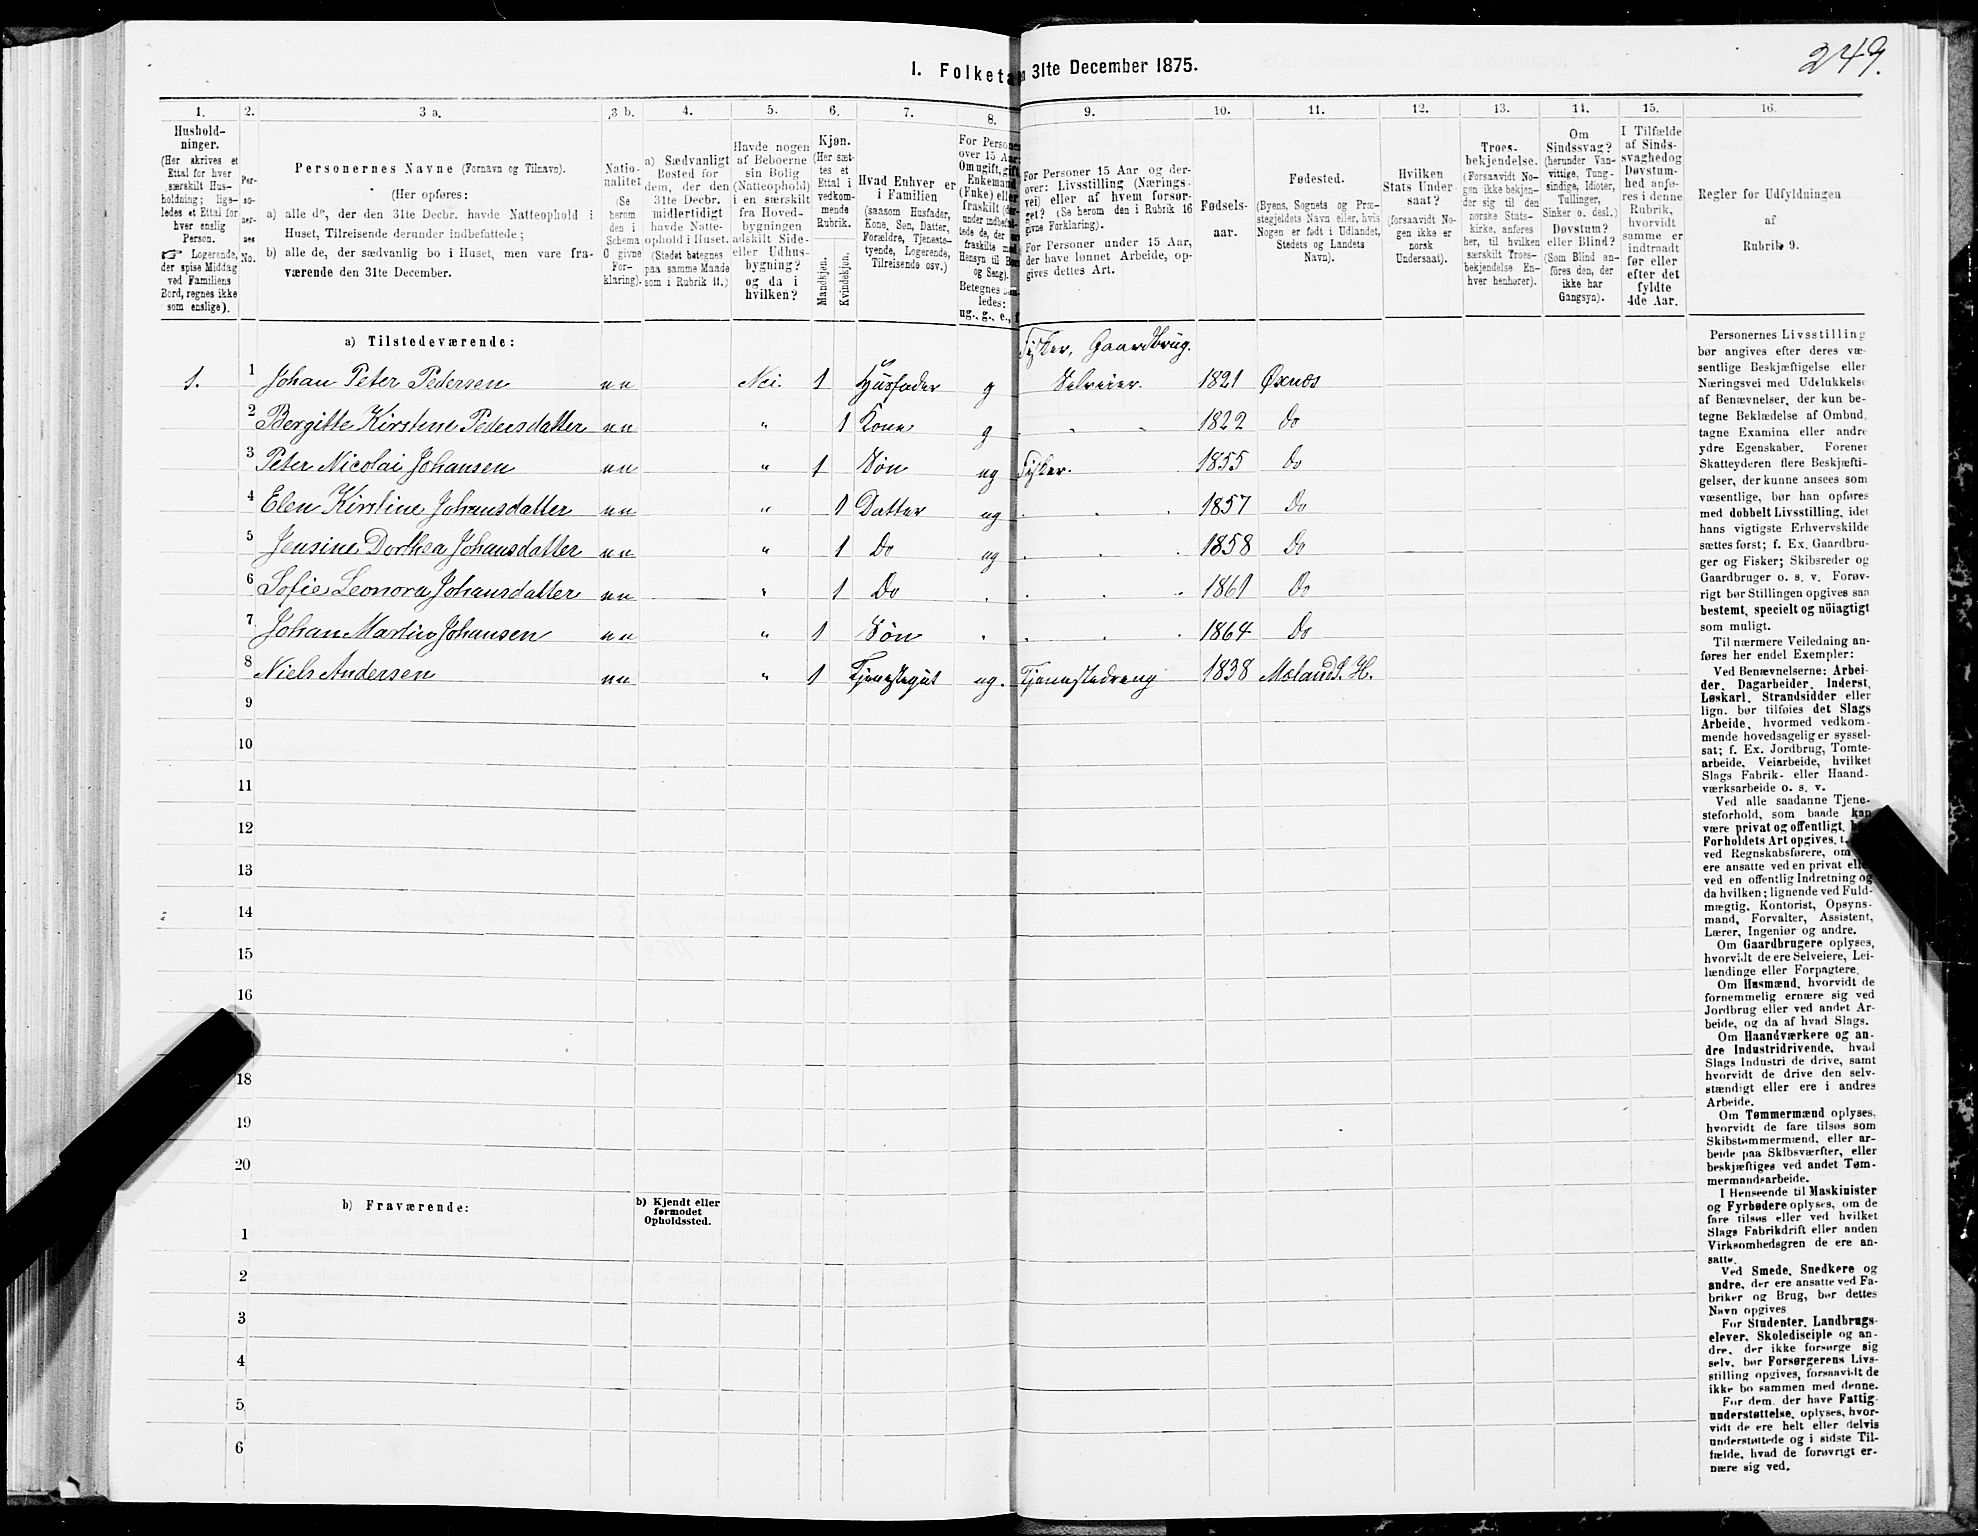 249.
I. Folketa 31te December 1875.
1. 2. 3 a. 3 b. 4. 5. 6. 7. 8. 9. 10. 11. 12. 13. 14. 15. 16.
Hushold-
ninger.
(Her skrives et
Ettal for hver
særskilt Hus-
holdning; lige-
ledes et Ettal for
hver enslig
Person.
☞ Logerende,
der spise Middag
ved Familiens
Bord, regnes ikke
som enslige).
Per-
so-
ner-
nes
No.
Personernes Navne (Fornavn og Tilnavn).
(Her opføres:
a) alle de, der den 31te Decbr. havde Natteophold i
Huset, Tilreisende derunder indbefattede;
b) alle de, der sædvanlig bo i Huset, men vare fra-
værende den 31te December.
Natio-
nalitet
(Se
herom
den i
Schema
6 givne
For-
klaring).
a) Sædvanligt
Bosted for
dem, der den
31te Decbr.
midlertidigt
havde Natte-
ophold i Huset.
(Stedet betegnes
paa samme Maade
som i Rubrik 11.)
Havde nogen
af Beboerne
sin Bolig
(Natteophold)
i en særskilt
fra Hoved-
bygningen
adskilt Side-
eller Udhus-
bygning?
og da i
hvilken?
Kjøn.
(Her sæt-
tes et
Ettal i
vedkom-
mende
Rubrik.
Mandkjøn.
Kvindekjøn.
Hvad Enhver er
i Familien
(saasom Husfader,
Kone, Søn, Datter,
Forældre, Tjeneste-
tyende, Logerende,
Tilreisende osv.)
For Persone
over 15 Aar
Om ugift, gift,
Enkemand
(Enke) eller
fraskilt (der-
under indbefat-
tede de, der er
fraskilte med
Hensyn til Bo
og Seng).
Betegnes saa-
ledes:
ug., g., e., f.
For Personer 15 Aar og der-
over: Livsstilling (Nærings-
vei) eller af hvem forsør-
get? (Se herom den i Rubrik 16
givne Forklaring).
For Personer under 15 Aar,
der have lønnet Arbeide, op-
gives dettes Art.
Fødsels-
aar.
Fødested.
(Byens, Sognets og Præ-
stegjeldets Navn eller, hvis
Nogen er født i Udlandet,
Stedets og Landets
Navn).
Hvilken
Stats Under-
saat?
(forsaavidt No-
gen ikke er
norsk
Undersaat).
Troes-
bekjendelse.
(Forsaavidt No-
gen ikke bekjen-
der sig til den
norske Stats-
kirke, anføres
her, til hvilken
særskilt Troes-
bekjendelse En-
hver henhører).
Om
Sindssvag?
(herunder Van-
vittige, Tung-
sindige, Idioter,
Tullinger,
Sinker o. desl.)
Døvstum?
eller Blind?
(Som Blind an-
føres den, der
ikke har
Gangsyn).
I Tilfælde
af Sinds-
svaghed og
Døvstum-
hed anfø-
res i denne
Rubrik,
hvorvidt
samme er
indtraadt
før eller
efter det
fyldte
4de Aar.
Regler for Udfyldningen
af
Rubrik 9.
a) Tilstedeværende:
Fisker, Gaardbrug.
1. 1 Johan Peter Pedersen nn Nei. 1 Husfader g Selveier. 1821 Øxnæs
2 Bergitte Kirstine Pedersdatter nn " 1 Kone g 1822 Do
3 Peter Nicolai Johansen nn " 1 Søn ug Fisker. 1855 Do
4 Elen Kirstine Johansdatter nn " 1 Datter ug 1857 Do
5 Jensine Dorthea Johansdatter nn " 1 Do ug 1858 Do
6 Sofie Leonora Johansdatter nn " 1 Do 1861 Do
7 Johan Martin Johansen nn " 1 Søn 1864 Do
8 Niels Andersen nn " 1 Tjenestegut ug. Tjenestedreng 1838 Mæland S. H.
9
10
11
12
13
14
15
16
18
19
20
b) Fraværende:
b) Kjendt eller
formodet
Opholdssted.
1
2
3
4
5
6
Personernes Livsstilling
bør angives efter deres væ-
sentlige Beskjæftigelse eller
Næringsvei med Udelukkelse
af Benævnelser, der kun be-
tegne Beklædelse af Ombud,
tagne Examina eller andre
ydre Egenskaber. Forener
Skatteyderen flere Beskjæfti-
gelser, der kunne ansees som
væsentlige, bør han opføres
med dobbelt Livsstilling, idet
hans vigtigste Erhvervskilde
sættes først; f. Ex. Gaardbru-
ger og Fisker; Skibsreder og
Gaardbruger o. s. v. Forøv-
rigt bør Stillingen opgives saa
bestemt, specielt og nöiagtigt
som muligt.
Til nærmere Veiledning an-
føres her endel Exempler:
Ved Benævnelserne: Arbei-
der, Dagarbeider, Inderst,
Løskarl, Strandsidder eller
lign. bør tilføies det Slags
Arbeide, hvormed vedkom-
mende hovedsagelig er syssel-
sat; f. Ex. Jordbrug, Tomte-
arbeide, Veiarbeide, hvilket
Slags Fabrik- eller Haand-
værksarbeide o. s. v.
Ved alle saadanne Tjene-
steforhold, som baade kan
være privat og offentligt,
Forholdets Art opgives, t.
ved Regnskabsførere, om
ere ansatte ved en privat elle
ved en offentlig Indretning og
da hvilken; lignende ved Fuld-
mægtig, Kontorist, Opsyns-
mand, Forvalter, Assistent,
Lærer, Ingeniør og andre.
Om Gaardbrugere oplyses,
hvorvidt de ere Selveiere, Lei-
lændinge eller Forpagtere.
Om Husmænd, hvorvidt de
fornemmelig ernære sig ved
Jordbrug eller ved andet Ar-
beide, og da af hvad Slags.
Om Haandværkere og an-
dre Industridrivende, hvad
Slags Industri de drive, samt
hvorvidt de drive den selv-
stændigt eller ere i andres
Arbeide.
Om Tømmermænd oplyses,
hvorvidt de fare tilsøs som
Skibstømmermænd, eller ar-
beide paa Skibsværfter, eller
beskjæftiges ved andet Tøm-
mermandsarbeide.
I Henseende til Maskinister
og Fyrbødere oplyses, om de
fare tilsøs eller ved hvilket
Slags Fabrikdrift eller anden
Virksomhedsgren de ere an-
satte.
Ved Smede, Snedkere og
andre, der ere ansatte ved Fa-
briker og Brug, bør dettes
Navn opgives
For Studenter, Landbrugs-
elever, Skoledisciple og an-
dre, der ikke forsørge sig
selv, bør Forsørgerens Livs-
stilling opgives, forsaavidt de
ikke bo sammen med denne.
For dem, der have Fattig-
understøttelse, oplyses, hvor-
vidt de ere helt eller delvis
understøttede og i sidste Til-
fælde, hvad de forøvrigt er-
nære sig ved.